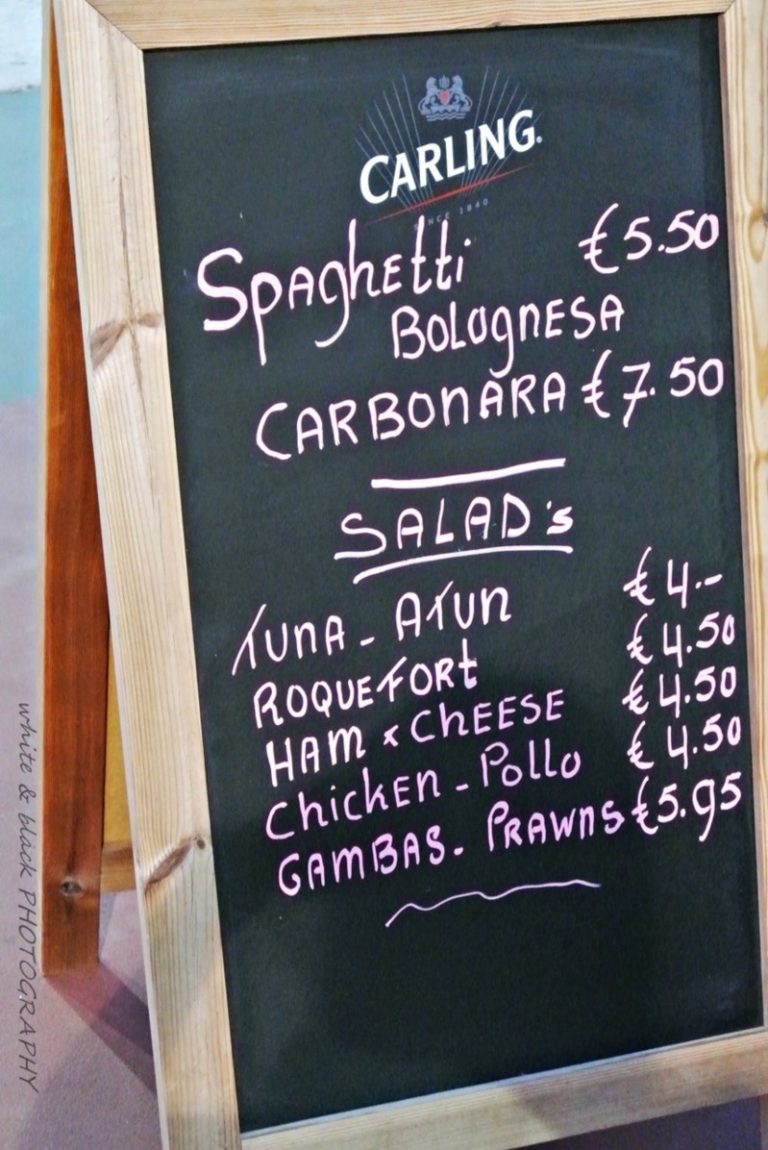 CARLING
SINCE 1840
Spaghetti €5.50
BOLOGNESA
CARBONARA €7.50
SALAD's
TUNA - ATUN €4.-
ROQUEFORT €4.50
HAM x CHEESE €4.50
CHICKEN - POLLO €4.50
GAMBAS - PRAWNS €5.95
white & black PHOTOGRAPHY